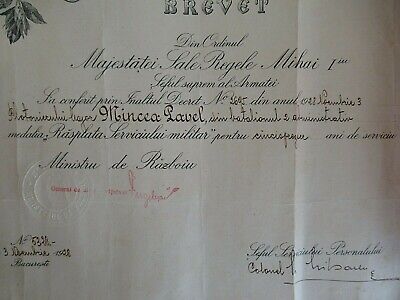 BREVET
Din Ordinul
Majestăței Sale Regele Mihai I
Șeful suprem al Armatei
Sa conferit prin Înaltul Decret No din anul 1928 Noembrie 3
Mincea Pavel, din batalionul 2 administrativ
medalia „Răsplata Serviciului militar" pentru ani de serviciu
Ministru de Războiu
General de
No
3 1928
București
Șeful Serviciului Personalului
Colonel